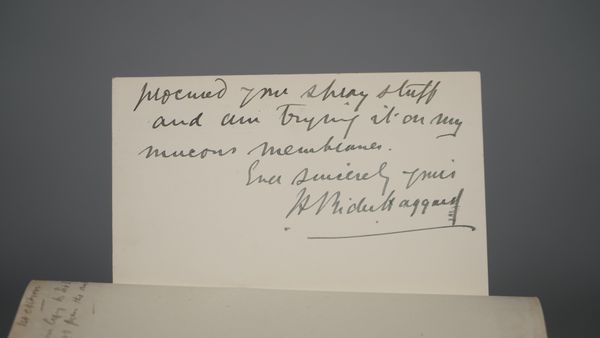 procured your spray stuff
and am trying it on my
mucous membranes.
Ever sincerely yours
H Rider Haggard